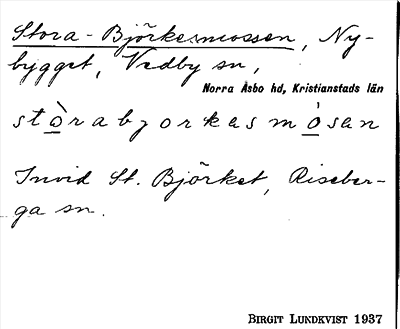 Stora-Björkesmossen, Ny-
bygget, Vedby sn,
Norra Åsbo hd, Kristianstads län
stòrabjorkasmósan
Invid St. Björket, Riseber-
ga sn.
BIRGIT LUNDKVIST 1937